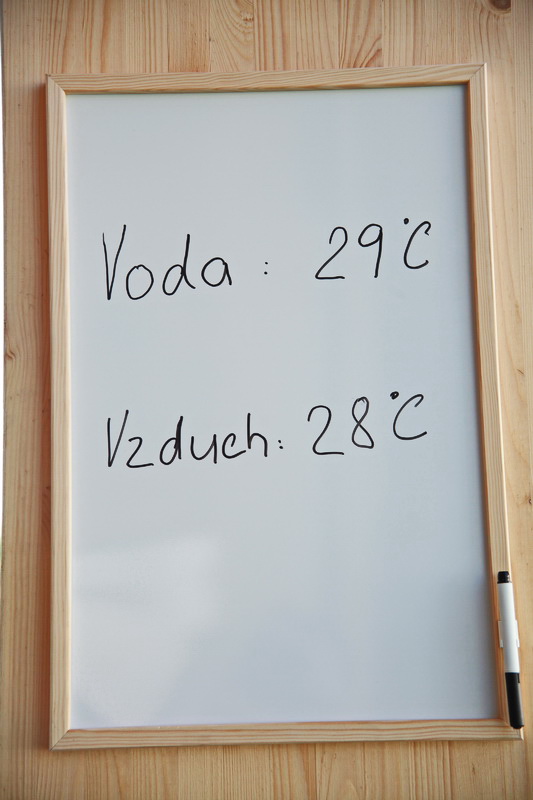 Voda : 29°C
Vzduch: 28°C